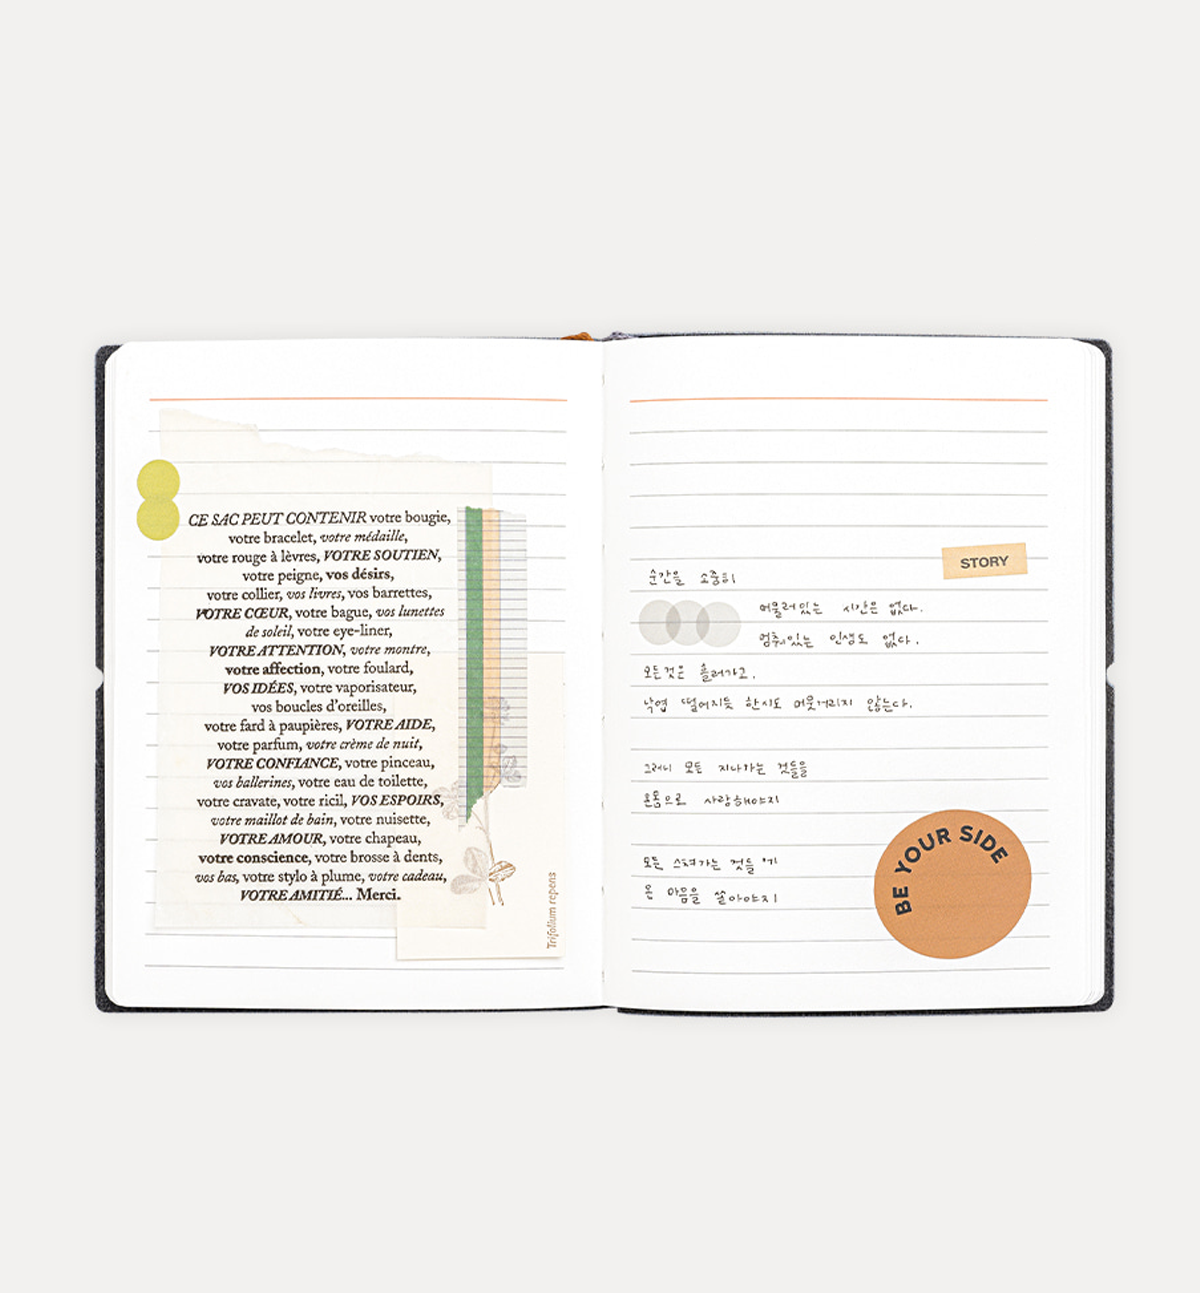 CE SAC PEUT CONTENIR votre bougie,
votre bracelet, votre médaille,
votre rouge à lèvres, VOTRE SOUTIEN,
votre peigne, vos désirs,
votre collier, vos livres, vos barrettes,
VOTRE CŒUR, votre bague, vos lunettes
de soleil, votre eye-liner,
VOTRE ATTENTION, votre montre,
votre affection, votre foulard,
VOS IDÉES, votre vaporisateur,
vos boucles d'oreilles,
votre fard à paupières, VOTRE AIDE,
votre parfum, votre crème de nuit,
VOTRE CONFIANCE, votre pinceau,
vos ballerines, votre eau de toilette,
votre cravate, votre ricil, VOS ESPOIRS,
votre maillot de bain, votre nuisette,
VOTRE AMOUR, votre chapeau,
votre conscience, votre brosse à dents,
vos bas, votre stylo à plume, votre cadeau,
VOTRE AMITIÉ... Merci.
Trifolium repens
STORY
순간을 소중히
머물러있는 시간은 없다.
멈춰있는 인생도 없다.
모든것은 흘러가고,
낙엽 떨어지듯 한시도 머뭇거리지 않는다.
그러니 모든 지나가는 것들을
온몸으로 사랑해야지
모든 스쳐가는 것들에
온 마음을 쏟아야지
BE YOUR SIDE